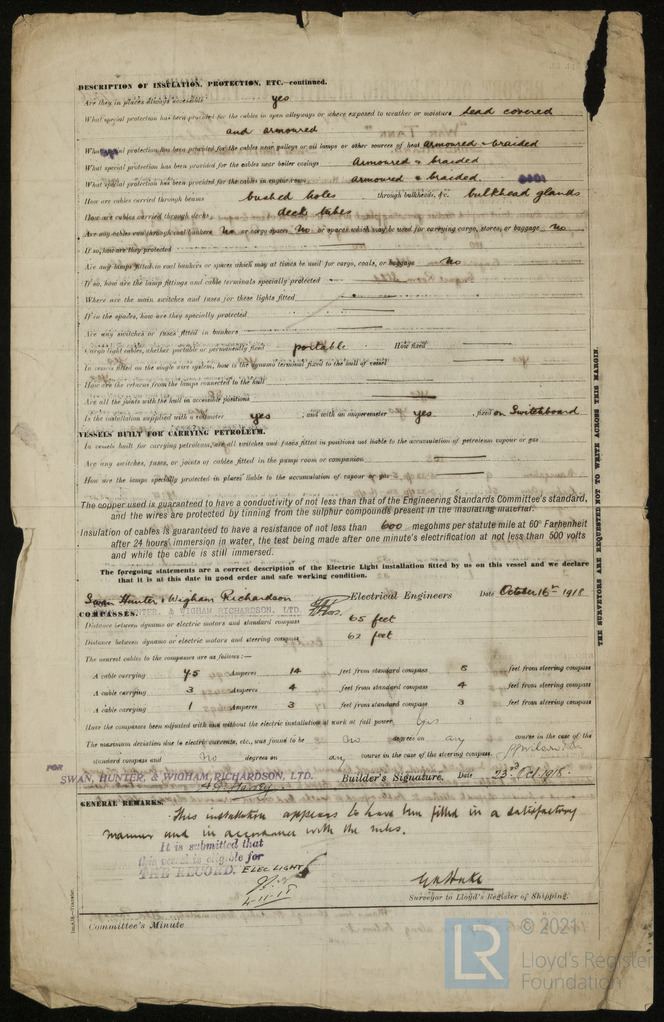 DESCRIPTION OF INSULATION, PROTECTION, ETC.—continued.
Are they in places always accessible yes
What special protection has been provided for the cables in open alleyways or where exposed to weather or moisture Lead covered
and armoured
What special protection has been provided for the cables near galleys or oil lamps or other sources of heat armoured & braided
What special protection has been provided for the cables near boiler casings armoured & braided
What special protection has been provided for the cables in engine room armoured & braided.
How are cables carried through beams bushed holes through bulkheads, &c. bulkhead glands
How are cables carried through decks deck tubes
Are any cables run through coal bunkers No or cargo spaces No or spaces which may be used for carrying cargo, stores, or baggage no
If so, how are they protected
Are any lamps fitted in coal bunkers or spaces which may at times be used for cargo, coals, or baggage No
If so, how are the lamp fittings and cable terminals specially protected
Where are the main switches and fuses for these lights fitted
If in the spaces, how are they specially protected
Are any switches or fuses fitted in bunkers
Cargo light cables, whether portable or permanently fixed portable How fixed
In vessels fitted on the single wire system, how is the dynamo terminal fixed to the hull of vessel
How are the returns from the lamps connected to the hull
Are all the joints with the hull in accessible positions
Is the installation supplied with a voltmeter yes , and with an amperemeter yes , fixed on Switchboard
VESSELS BUILT FOR CARRYING PETROLEUM.
In vessels built for carrying petroleum, are all switches and fuses fitted in positions not liable to the accumulation of petroleum vapour or gas
Are any switches, fuses, or joints of cables fitted in the pump room or companion
How are the lamps specially protected in places liable to the accumulation of vapour or gas
The copper used is guaranteed to have a conductivity of not less than that of the Engineering Standards Committee's standard,
and the wires are protected by tinning from the sulphur compounds present in the insulating material.
Insulation of cables is guaranteed to have a resistance of not less than 600 megohms per statute mile at 60° Farhenheit
after 24 hours' immersion in water, the test being made after one minute's electrification at not less than 500 volts
and while the cable is still immersed.
The foregoing statements are a correct description of the Electric Light installation fitted by us on this vessel and we declare
that it is at this date in good order and safe working condition.
Swan Hunter & Wigham Richardson Electrical Engineers Date October 16th 1918
HUNTER, & WIGHAM RICHARDSON, LTD.
COMPASSES.
Distance between dynamo or electric motors and standard compass 65 feet
Distance between dynamo or electric motors and steering compass 62 feet
The nearest cables to the compasses are as follows:—
A cable carrying 45 Amperes 14 feet from standard compass 5 feet from steering compass
A cable carrying 3 Amperes 4 feet from standard compass 4 feet from steering compass
A cable carrying 1 Amperes 3 feet from standard compass 3 feet from steering compass
Have the compasses been adjusted with and without the electric installation at work at full power Yes
The maximum deviation due to electric currents, etc., was found to be No degrees on any course in the case of the
standard compass and No degrees on any course in the case of the steering compass.
FOR
SWAN, HUNTER, & WIGHAM RICHARDSON, LTD. Builder's Signature. Date 23rd Oct 1918.
GENERAL REMARKS.
This installation appears to have been fitted in a satisfactory
manner and in accordance with the rules.
It is submitted that
this vessel is eligible for
THE RECORD. ELEC LIGHT
4-11-18
Surveyor to Lloyd's Register of Shipping.
Committee's Minute
THE SURVEYORS ARE REQUESTED NOT TO WRITE ACROSS THIS MARGIN.
LR © 2021
Lloyd's Register
Foundation